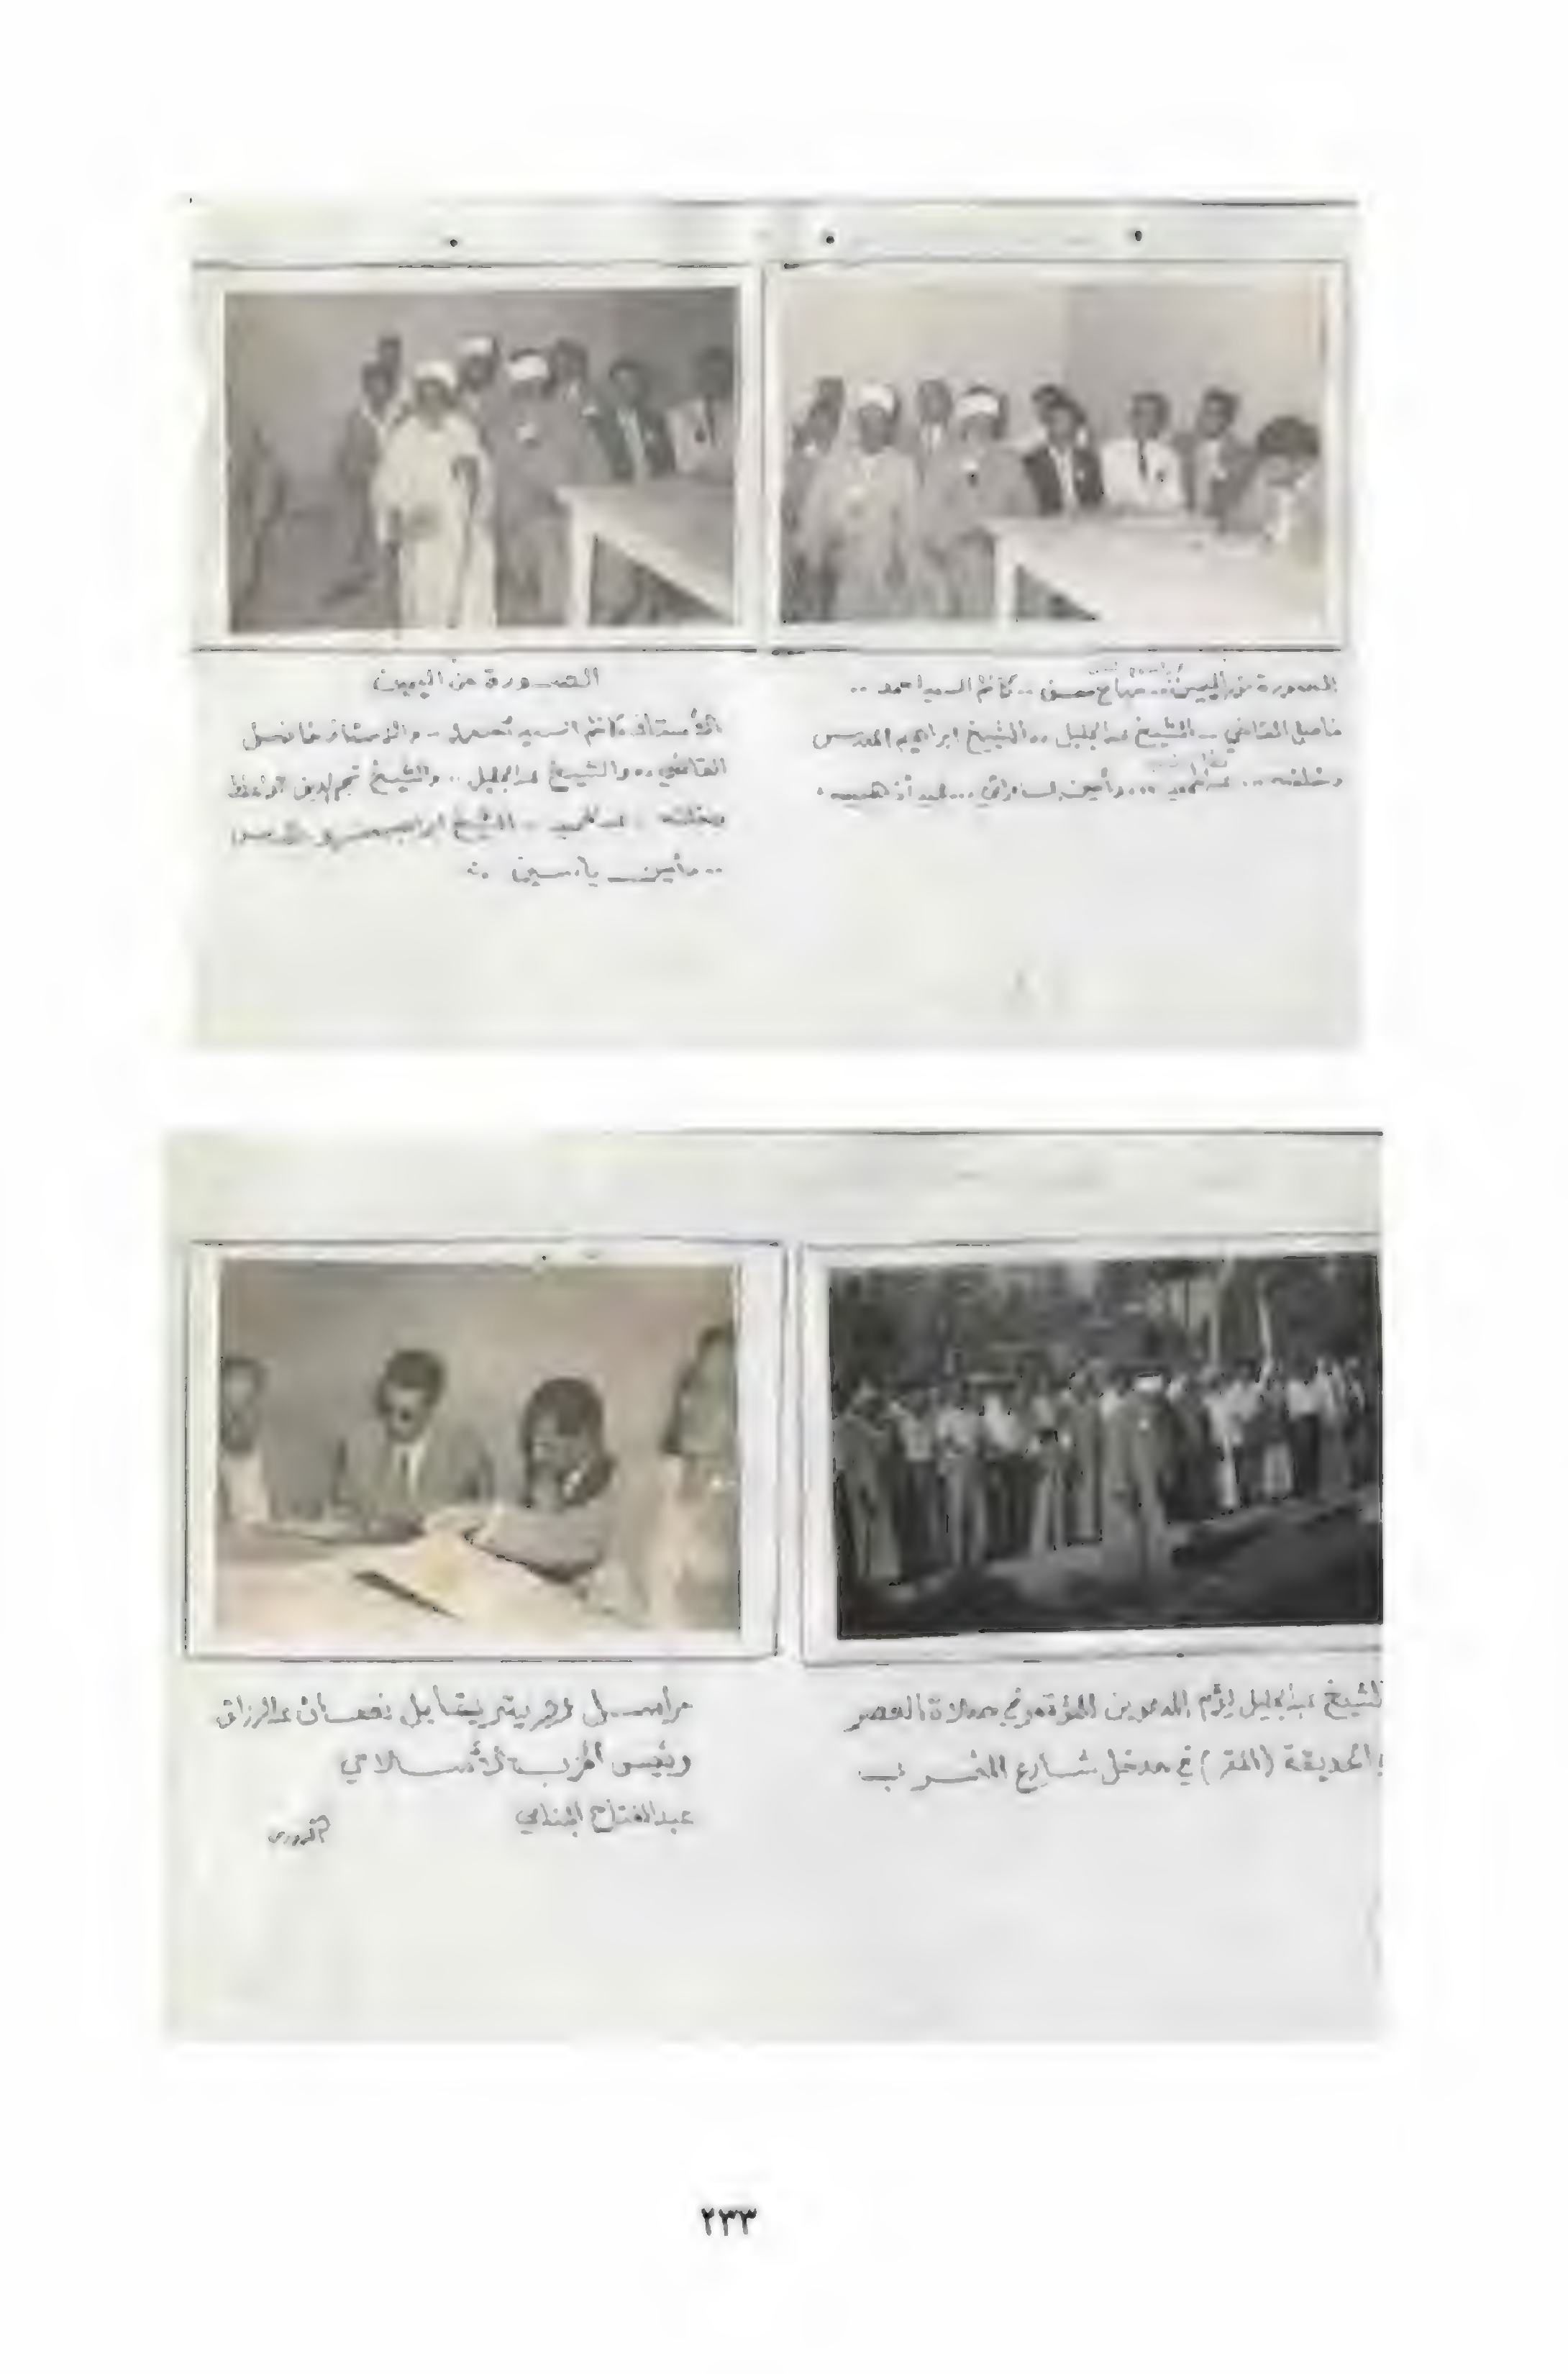 الصورة من اليمين .. صباح محسن .. كاظم السيد احمد ..
فاضل القاضي .. الشيخ عبدالجليل .. الشيخ ابراهيم المدرس
وخلفه .. عبدالحميد ... وأمين
الصورة من اليمين
الأستاذ كاظم السيد أحمد .. والاستاذ فاضل
القاضي .. والشيخ عبدالجليل .. والشيخ نجم الدين الواعظ
وخلفه .. عبدالحميد .. الشيخ ابراهيم
.. وأمين ياسين ..
الشيخ عبدالجليل يؤم المدعوين للمؤتمر في صلاة العصر
الحديقة (المقر) في مدخل شارع المغرب
مراسل رويتر يقابل نعمان عبدالرزاق
ورئيس الحزب الأسلامي
عبدالفتاح
٢٣٣